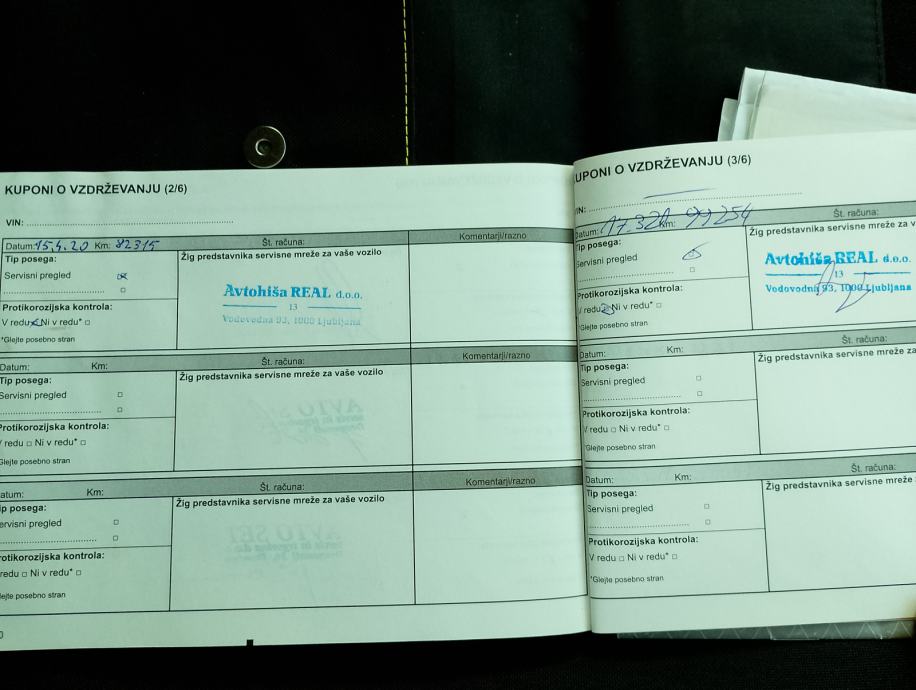 KUPONI O VZDRŽEVANJU (2/6)
VIN: ............................................................
Datum: 15.4.20 Km: 82315 Št. računa: Komentarji/razno
Tip posega:
Servisni pregled
Protikorozijska kontrola:
V redu Ni v redu* □
*Glejte posebno stran
Žig predstavnika servisne mreže za vaše vozilo
Avtohiša REAL d.o.o.
13
Vodovodna 93, 1000 Ljubljana
Datum: Km: Št. računa: Komentarji/razno
Tip posega:
Servisni pregled □
.................................. □
Protikorozijska kontrola:
V redu □ Ni v redu* □
*Glejte posebno stran
Žig predstavnika servisne mreže za vaše vozilo
atum: Km: Št. računa: Komentarji/razno
ip posega:
ervisni pregled □
.................................. □
rotikorozijska kontrola:
redu □ Ni v redu* □
lejte posebno stran
Žig predstavnika servisne mreže za vaše vozilo
UPONI O VZDRŽEVANJU (3/6)
IN: ............................................................
Datum: Km: 99254 Št. računa:
Tip posega:
Servisni pregled
.................................. □
Protikorozijska kontrola:
V redu Ni v redu* □
*Glejte posebno stran
Žig predstavnika servisne mreže za v
Avtohiša REAL d.o.o.
13
Vodovodna 93, 1000 Ljubljana
Datum: Km: Št. računa:
Tip posega:
Servisni pregled □
.................................. □
Protikorozijska kontrola:
V redu □ Ni v redu* □
*Glejte posebno stran
Žig predstavnika servisne mreže za
Datum: Km: Št. računa:
Tip posega:
Servisni pregled □
.................................. □
Protikorozijska kontrola:
V redu □ Ni v redu* □
*Glejte posebno stran
Žig predstavnika servisne mreže